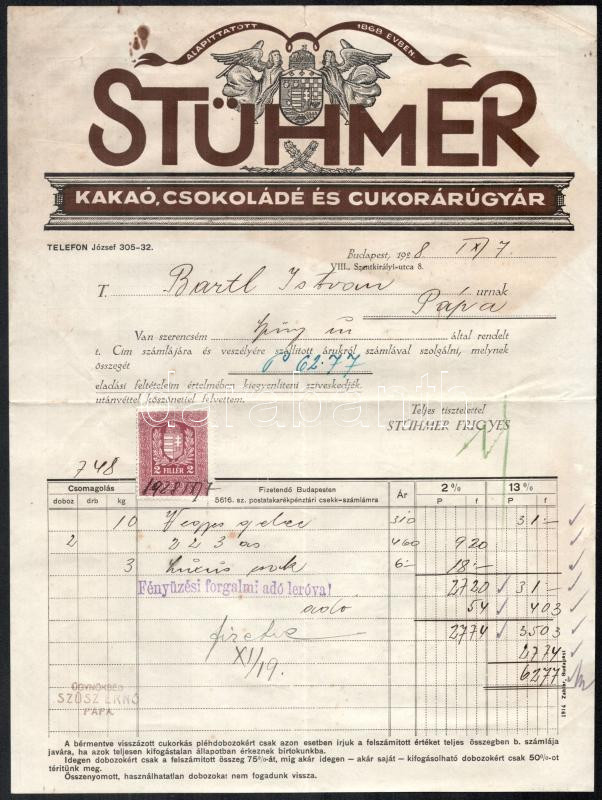 ALAPITTATOTT 1868 ÉVBEN.
STÜHMER
KAKAÓ, CSOKOLÁDÉ ÉS CUKORÁRÚGYÁR
TELEFON József 305-32.
Budapest, 1928. IX/7.
VIII., Szentkirályi-utca 8.
T. Bartl István urnak
Pápa
Van szerencsém által rendelt
t. Cím számlájára és veszélyére szállított árukról számlával szolgálni, melynek
összegét P 62.77
eladási feltételeim értelmében kiegyenlíteni sziveskedjék.
utánvéttel köszönettel felvettem.
Teljes tisztelettel
STÜHMER FRIGYES
2 FILLÉR 2
1928 IX/7
748
Csomagolás
doboz drb kg
Fizetendő Budapesten
5616. sz. postatakarékpénztári csekk-számlámra
Ár
2% 13%
P f P f
10 310 31.-
2 223 as 460 920
3 6.- 18.-
Fényüzési forgalmi adó leróva!
2720 31.-
adó 54 403
2774 3503
XI/19. 2774
6277
ÜGYNÖKSÉG
SZŐSZ ERNŐ
PÁPA
1914 Zahler, Budapest
A bérmentve visszázott cukorkás pléhdobozokért csak azon esetben irjuk a felszámitott értéket teljes összegében b. számlája
javára, ha azok teljesen kifogástalan állapotban érkeznek birtokunkba.
Idegen dobozokért csak a felszámitott összeg 75%-át, mig akár idegen - akár saját - kifogásolható dobozokért csak 50%-ot
téritünk meg.
Összenyomott, használhatatlan dobozokat nem fogadunk vissza.